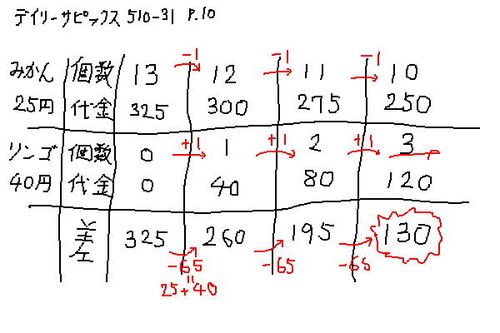 デイリーサピックス 510-31 P.10
-1 -1 -1
みかん 個数 13 12 11 10
25円 代金 325 300 275 250
+1 +1 +1
リンゴ 個数 0 1 2 3
40円 代金 0 40 80 120
差 325 260 195 130
-65 -65 -65
"
25+40